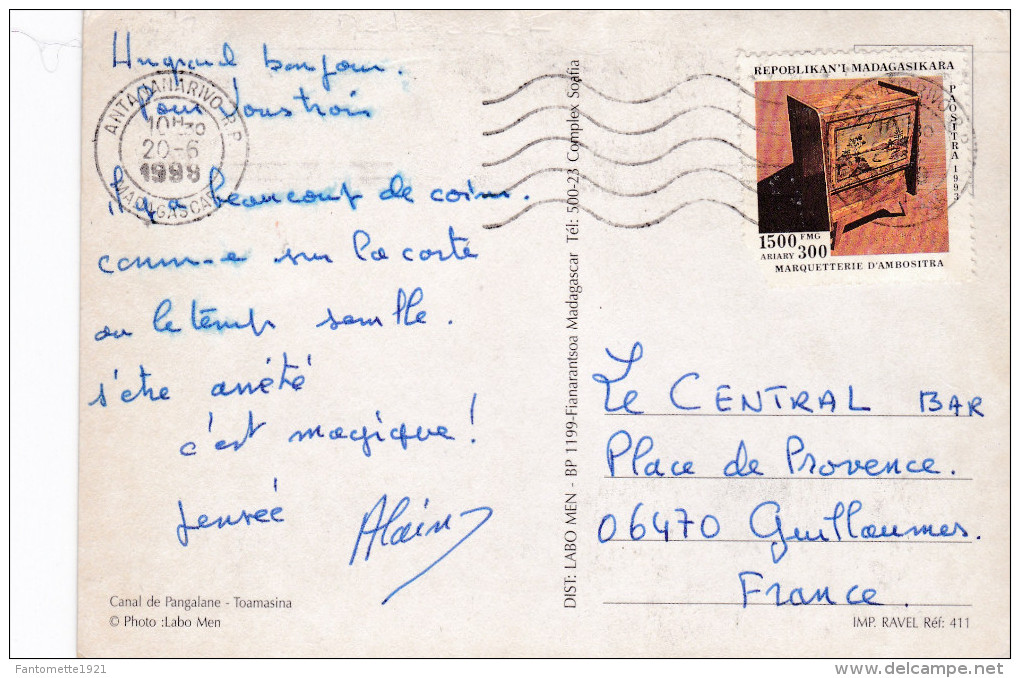 Un grand bonjour.
pour vous trois
il y a beaucoup de coins.
comm-e sur la carte
ou le temps semble.
s'etre arrêté
c'est magique!
pensée
Alain
Canal de Pangalane - Toamasina
© Photo :Labo Men
ANTANANARIVO R.P.
10H30
20-6
1998
MADAGASCAR
DIST: LABO MEN - BP 1199-Fianarantsoa Madagascar Tél: 500-23 Complex Soafia
REPOBLIKAN'I MADAGASIKARA
PAOSITRA 1993
1500 FMG
ARIARY 300
MARQUETTERIE D'AMBOSITRA
Le CENTRAL BAR
Place de Provence.
06470 Guillaumes.
France.
IMP. RAVEL Réf: 411
Fantomette1921
delcampe.net